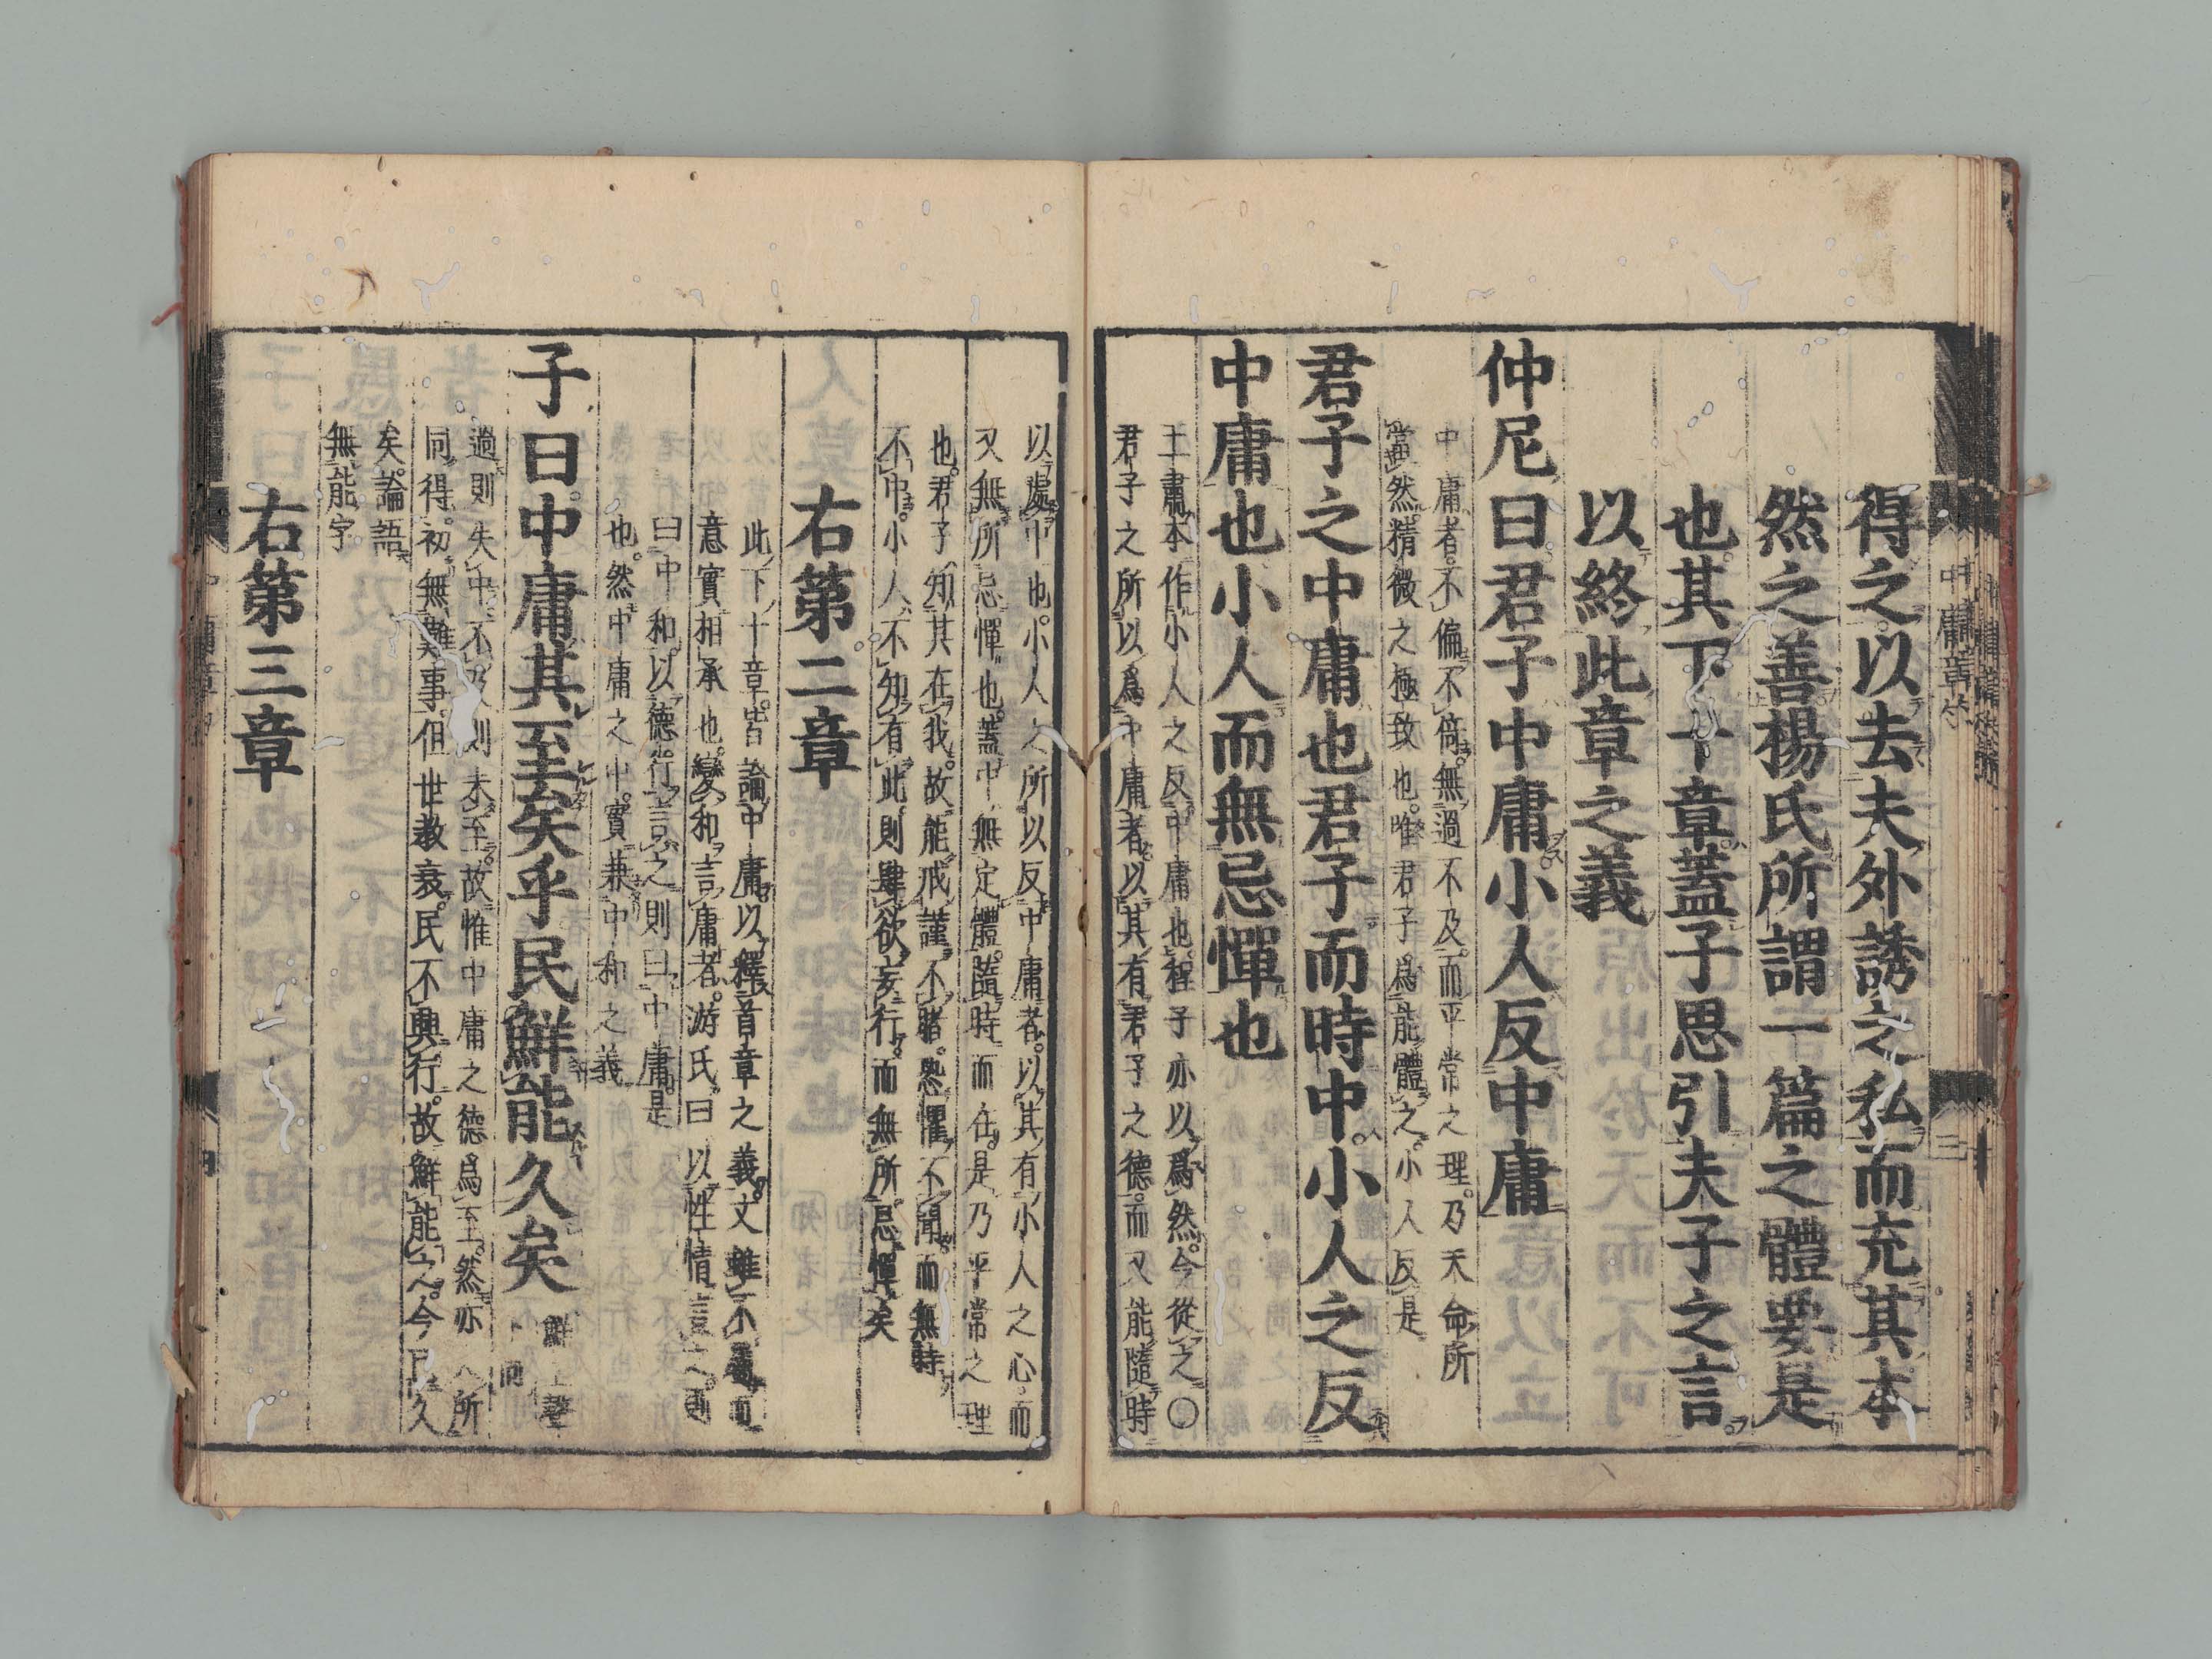 得之以去夫外誘之私而充其本
然之善楊氏所謂一篇之體要是
也其下十章蓋子思引夫子之言
以終此章之義
仲尼曰君子中庸小人反中庸
中庸者不偏不倚無過不及而平常之理乃天命所
當然精微之極致也唯君子爲能體之小人反是
君子之中庸也君子而時中小人之反
中庸也小人而無忌憚也
王肅本作小人之反中庸也程子亦以爲然今從之〇
君子之所以爲中庸者以其有君子之德而又能隨時
以處中也小人之所以反中庸者以其有小人之心而
又無所忌憚也蓋中無定體隨時而在是乃平常之理
也君子知其在我故能戒謹不睹恐懼不聞而無時
不中小人不知有此則肆欲妄行而無所忌憚矣
右第二章
此下十章皆論中庸以釋首章之義文雖不屬而
意實相承也變和言庸者游氏曰以性情言之則
曰中和以德行言之則曰中庸是
也然中庸之中實兼中和之義
子曰中庸其至矣乎民鮮能久矣
鮮上聲
下同
過則失中不及則未至故惟中庸之德爲至然亦人所
同得初無難事但世教衰民不興行故鮮能之今已久
矣論語
無能字
右第三章